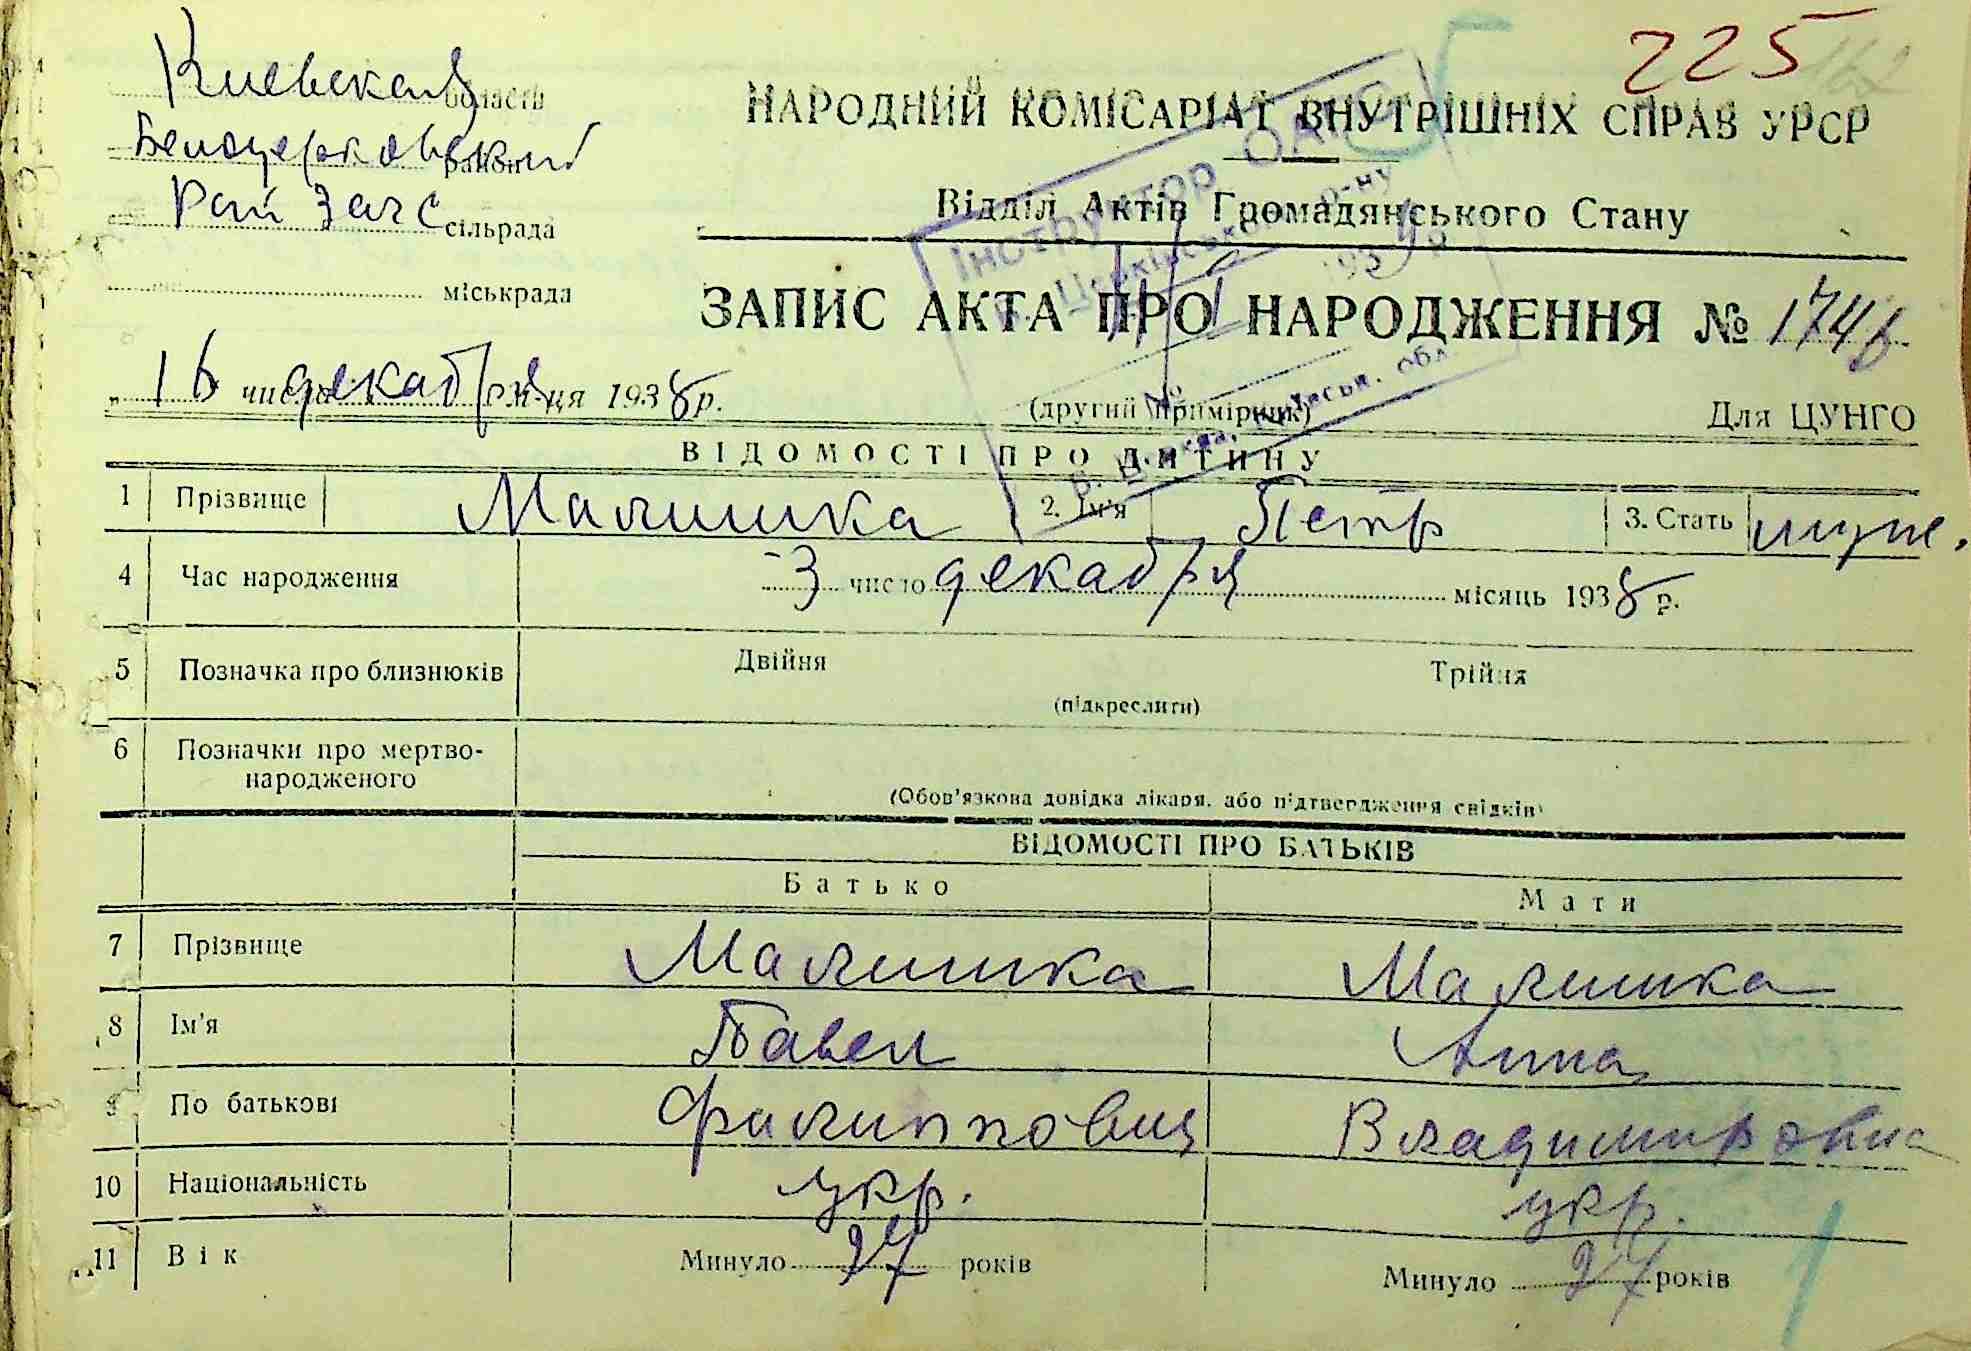 225
162
Киевская область
Белоцерковский район
Рай Загс сільрада
міськрада
НАРОДНИЙ КОМІСАРІАТ ВНУТРІШНІХ СПРАВ УРСР
Відділ Актів Громадянського Стану
ЗАПИС АКТА ПРО НАРОДЖЕННЯ № 1746
„ 16 число декабря м-ця 1938 р.
(другий примірник)
Для ЦУНГО
Інструктор ОАГС
Церківського р-ну
193 р
№
Б. Церква, Київськ. обл.
ВІДОМОСТІ ПРО ДИТИНУ
1 Прізвище Малишка 2. Ім'я Петр 3. Стать муж.
4 Час народження 3 число декабря місяць 1938 р.
5 Позначка про близнюків Двійня Трійня
(підкреслити)
6 Позначки про мертво-
народженого
(Обов'язкова довідка лікаря, або підтвердження свідків)
ВІДОМОСТІ ПРО БАТЬКІВ
Батько Мати
7 Прізвище Малишка Малишка
8 Ім'я Павел Анна
9 По батькові Филиппович Владимировна
10 Національність укр. укр.
11 Вік Минуло 27 років Минуло 27 років